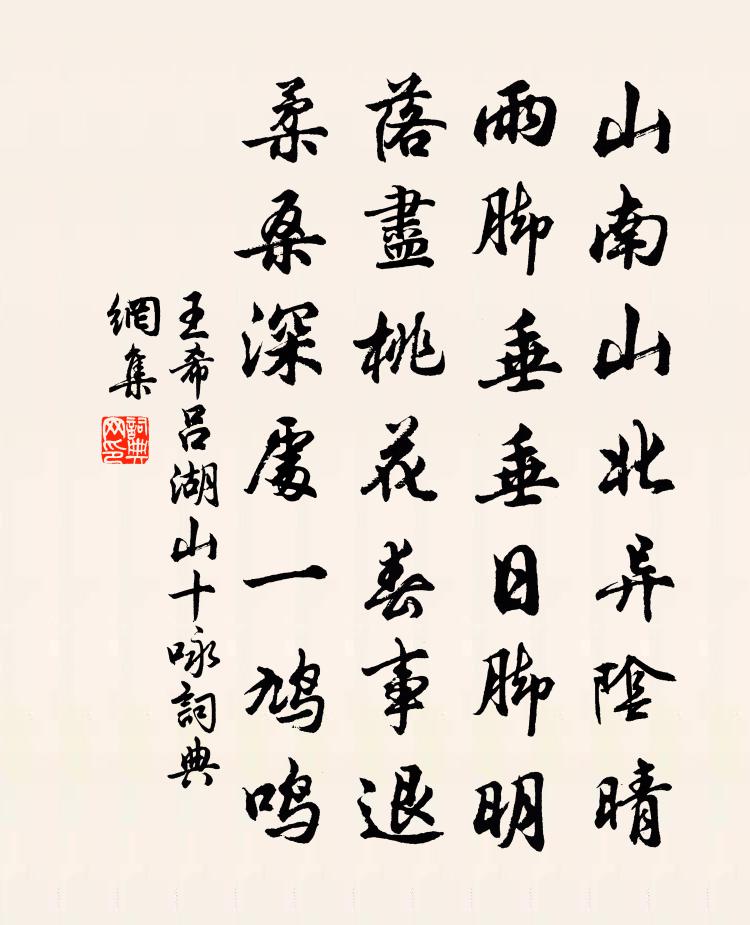 山南山北异陰晴
雨脚垂垂日脚明
落盡桃花春事退
柔桑深處一鳩鳴
王希吕湖山十咏詞典
網集
詞典
网印